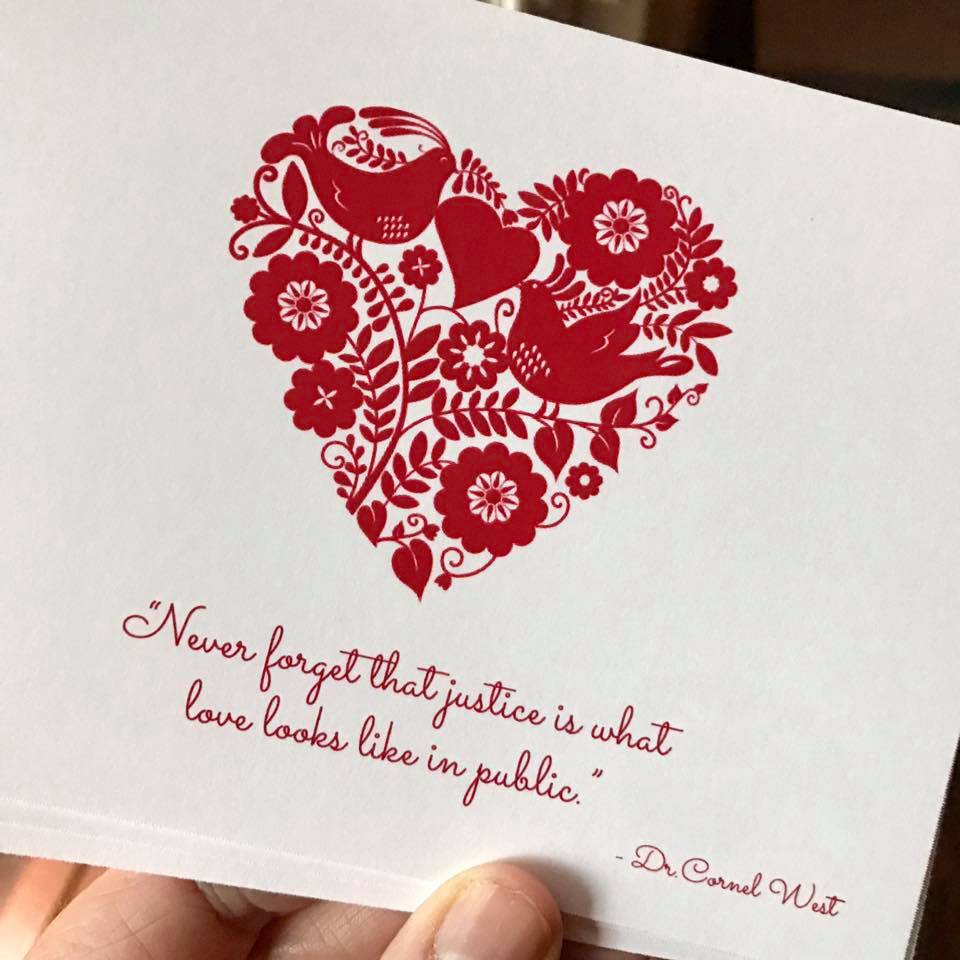 “Never forget that justice is what
love looks like in public.”
- Dr. Cornel West